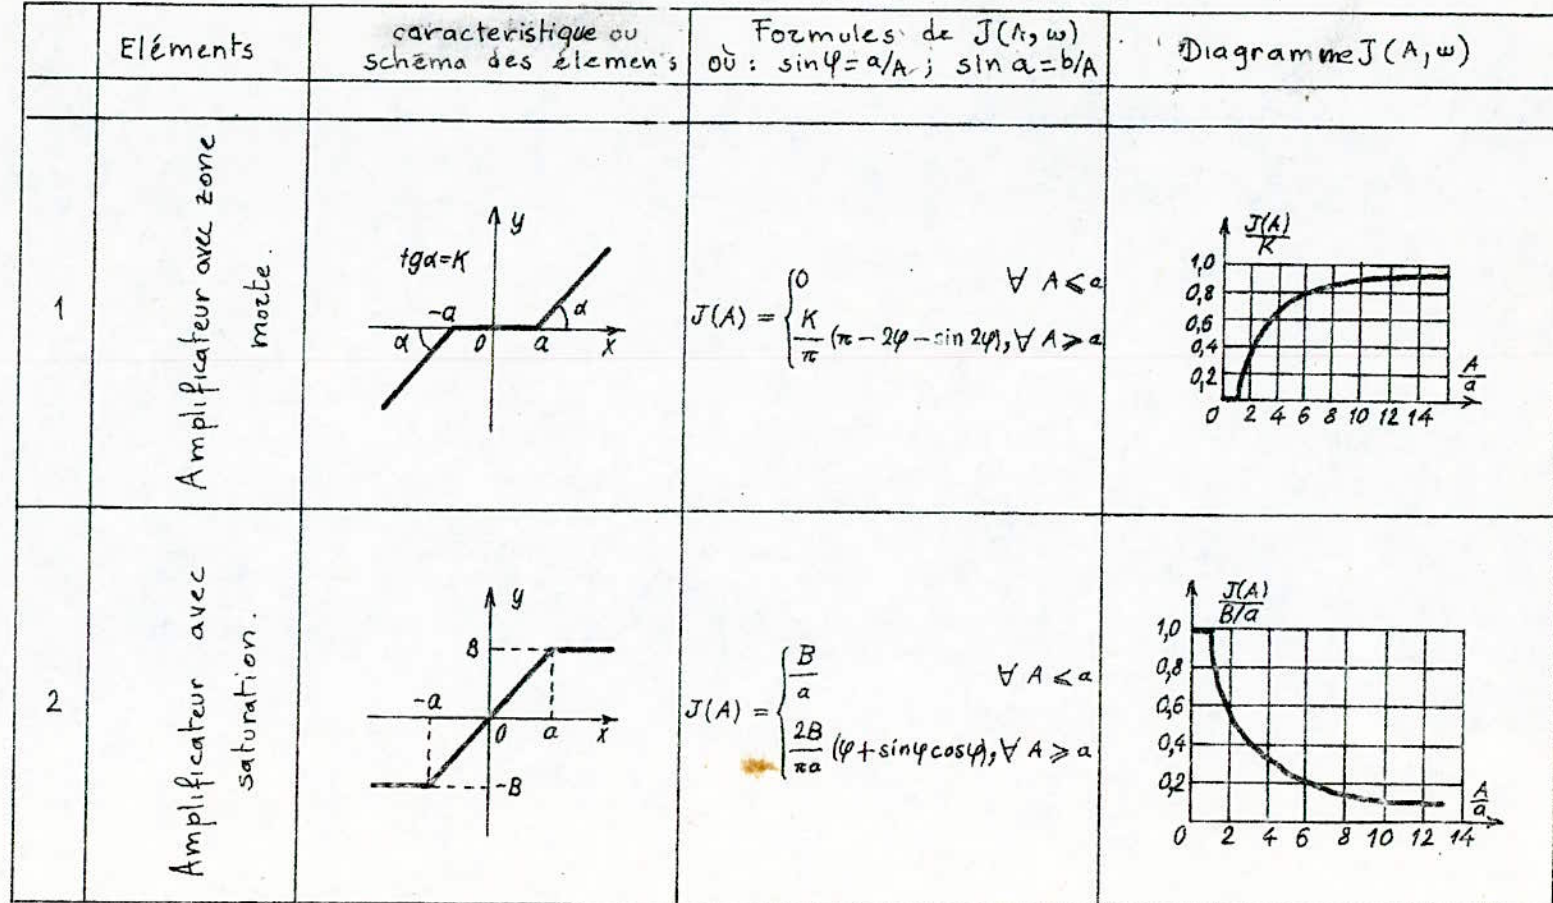 Eléments
caracteristique ou
schéma des élemens
Formules de J(A, ω)
où : sin φ = a/A ; sin a = b/A
Diagramme J(A, ω)
1
Amplificateur avec zone
morte.
y
tgα=K
-a
α
α
0
a
x
J(A) = {0 ∀ A ⩽ a
K/π (π - 2φ - sin 2φ), ∀ A ⩾ a
J(A)/K
1,0
0,8
0,6
0,4
0,2
A/a
0 2 4 6 8 10 12 14
2
Amplificateur avec
saturation.
y
B
-a
0
a
x
-B
J(A) = {B/a ∀ A ⩽ a
2B/πa (φ + sinφ cosφ), ∀ A ⩾ a
J(A)/B/a
1,0
0,8
0,6
0,4
0,2
A/a
0 2 4 6 8 10 12 14